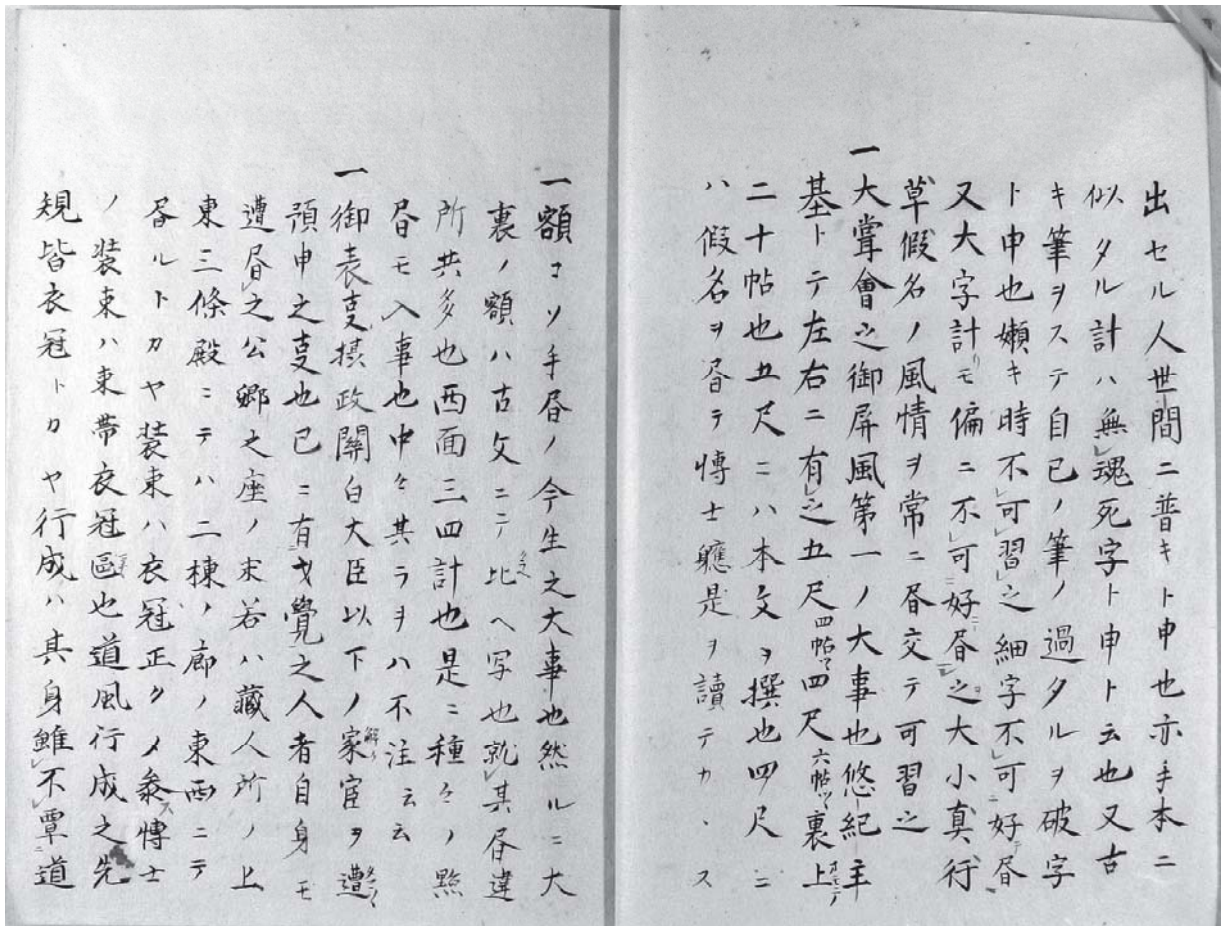 出セル人世間ニ普キト申也亦手本ニ
似タル計ハ無魂死字ト申ト云也又古
キ筆ヲステ自己ノ筆ノ過タルヲ破字
ト申也嬾キ時不可習之細字不可好昼
又大字計リモ偏ニ不可好昼之大小真行
草假名ノ風情ヲ常ニ昼交テ可習之
一大嘗會之御屏風第一ノ大事也悠紀主
基トテ左右ニ有之五尺四帖ツヽ四尺六帖ツヽ裏上
二十帖也五尺ニハ本文ヲ撰也四尺ニ
ハ假名ヲ昼テ博士軈是ヲ讀テカヽス
一額コソ手昼ノ今生之大事也然ルニ大
裏ノ額ハ古文ニテ比ヘ写也就其昼違
所共多也西面三四計也是ニ種々ノ點
昼モ入事也中々其ラヲハ不注云云
一御表㕝摂政關白大臣以下ノ家官ヲ遭
預申之㕝也已ニ有才覺之人者自身モ
遭昼之公卿之座ノ末若ハ藏人所ノ上
東三條殿ニテハ二棟ノ廊ノ東西ニテ
昼ルトカヤ装束ハ衣冠正クメ参博士
ノ装束ハ束帯衣冠區也道風行成之先
規皆衣冠トカヤ行成ハ其身雖不覃道